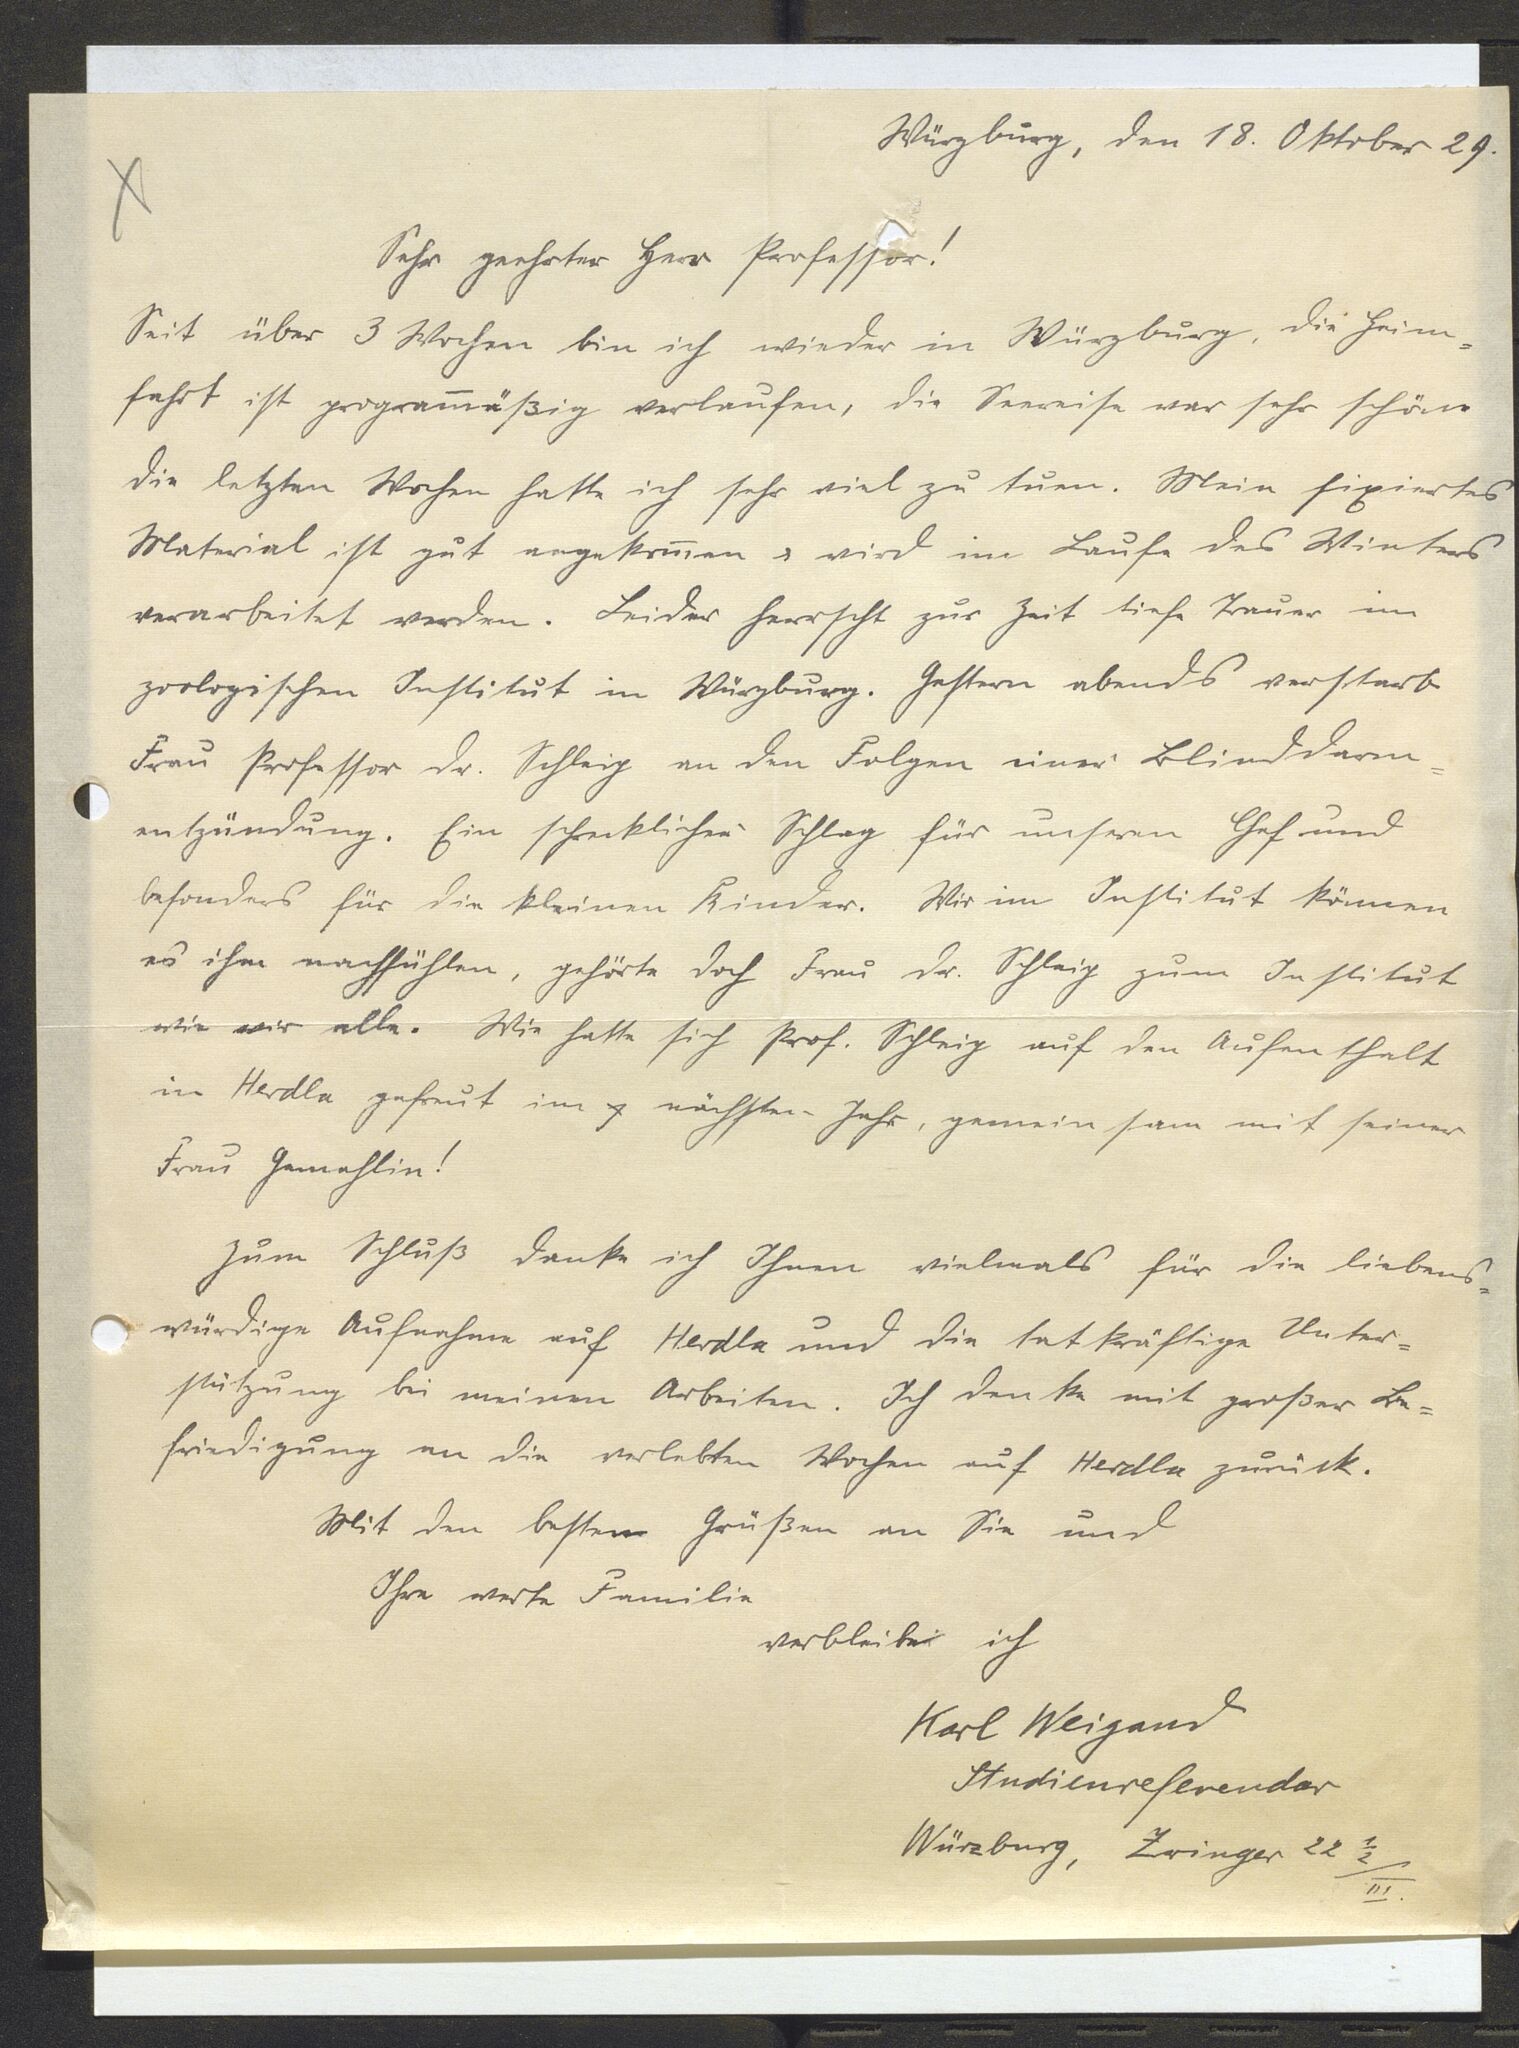 Würzburg, den 18. Oktober 29.
Sehr geehrter Herr Professor!
Seit über 3 Wochen bin ich wieder in Würzburg, die Heim=
fahrt ist programm̄äßig verlaufen, die Seereise war sehr schön
die letzten Wochen hatte ich sehr viel zu tuen. Mein fixiertes
Material ist gut angekom̄en & wird im Laufe des Winters
verarbeitet werden. Leider herrscht zur Zeit tiefe Trauer im
zoologischen Institut in Würzburg. Gestern abends verstarb
Frau Professor Dr. Schleip an den Folgen einer Blinddarm=
entzündung. Ein schrecklicher Schlag für unseren Chef und
besonders für die kleinen Kinder. Wir im Institut können
es ihm nachfühlen, gehörte doch Frau Dr. Schleip zum Institut
wie wir alle. Wie hatte sich Prof. Schleip auf den Aufenthalt
in Herdla gefreut im nächsten Jahr, gemeinsam mit seiner
Frau Gemahlin!
Zum Schluß danke ich Ihnen vielmals für die liebens=
würdige Aufnahme auf Herdla und die tatkräftige Unter=
stützung bei meinen Arbeiten. Ich denke mit großer Be=
friedigung an die verlebten Wochen auf Herdla zurück.
Mit den besten Grüßen an Sie und
Ihre werte Familie
verbleibe ich
Karl Weigand
Studienreferendar
Würzburg, Zwinger 22 1/2 / III.